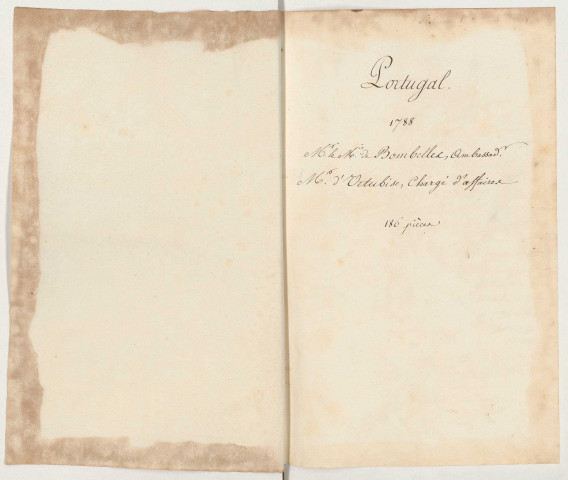 Portugal.
1788
Mr. le Mis. de Bombelles, Ambassadr.
Mr. d'Urtubise, Chargé d'affaires
186 pièces